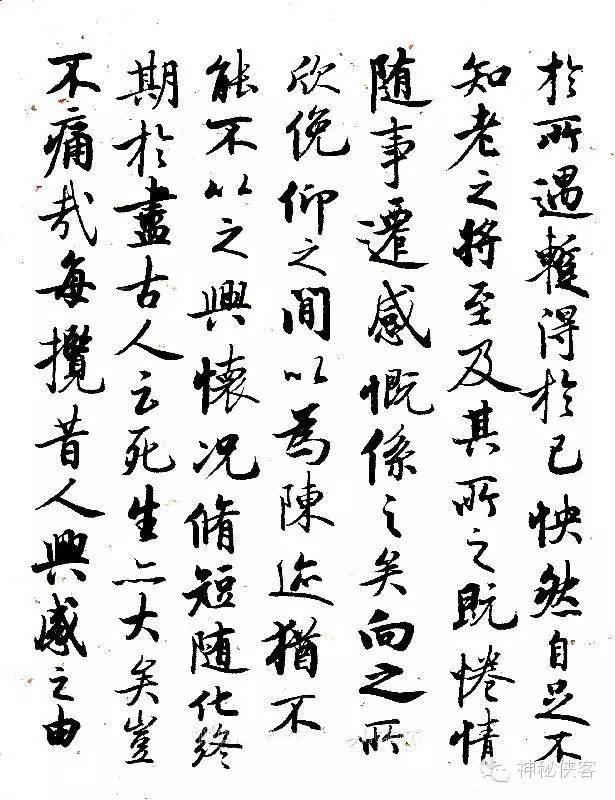 於所遇蹔得於己怏然自足不
知老之将至及其所之既惓情
随事遷感慨係之矣向之所
欣俛仰之間以為陳迹猶不
能不以之興懷况脩短随化終
期於盡古人云死生亦大矣豈
不痛哉每攬昔人興感之由
神秘侠客